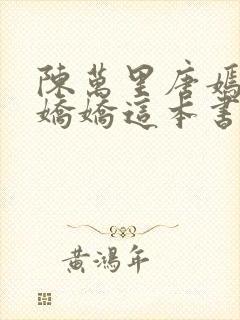 陳萬里唐嫣
嬌嬌這本書
黃鴻年